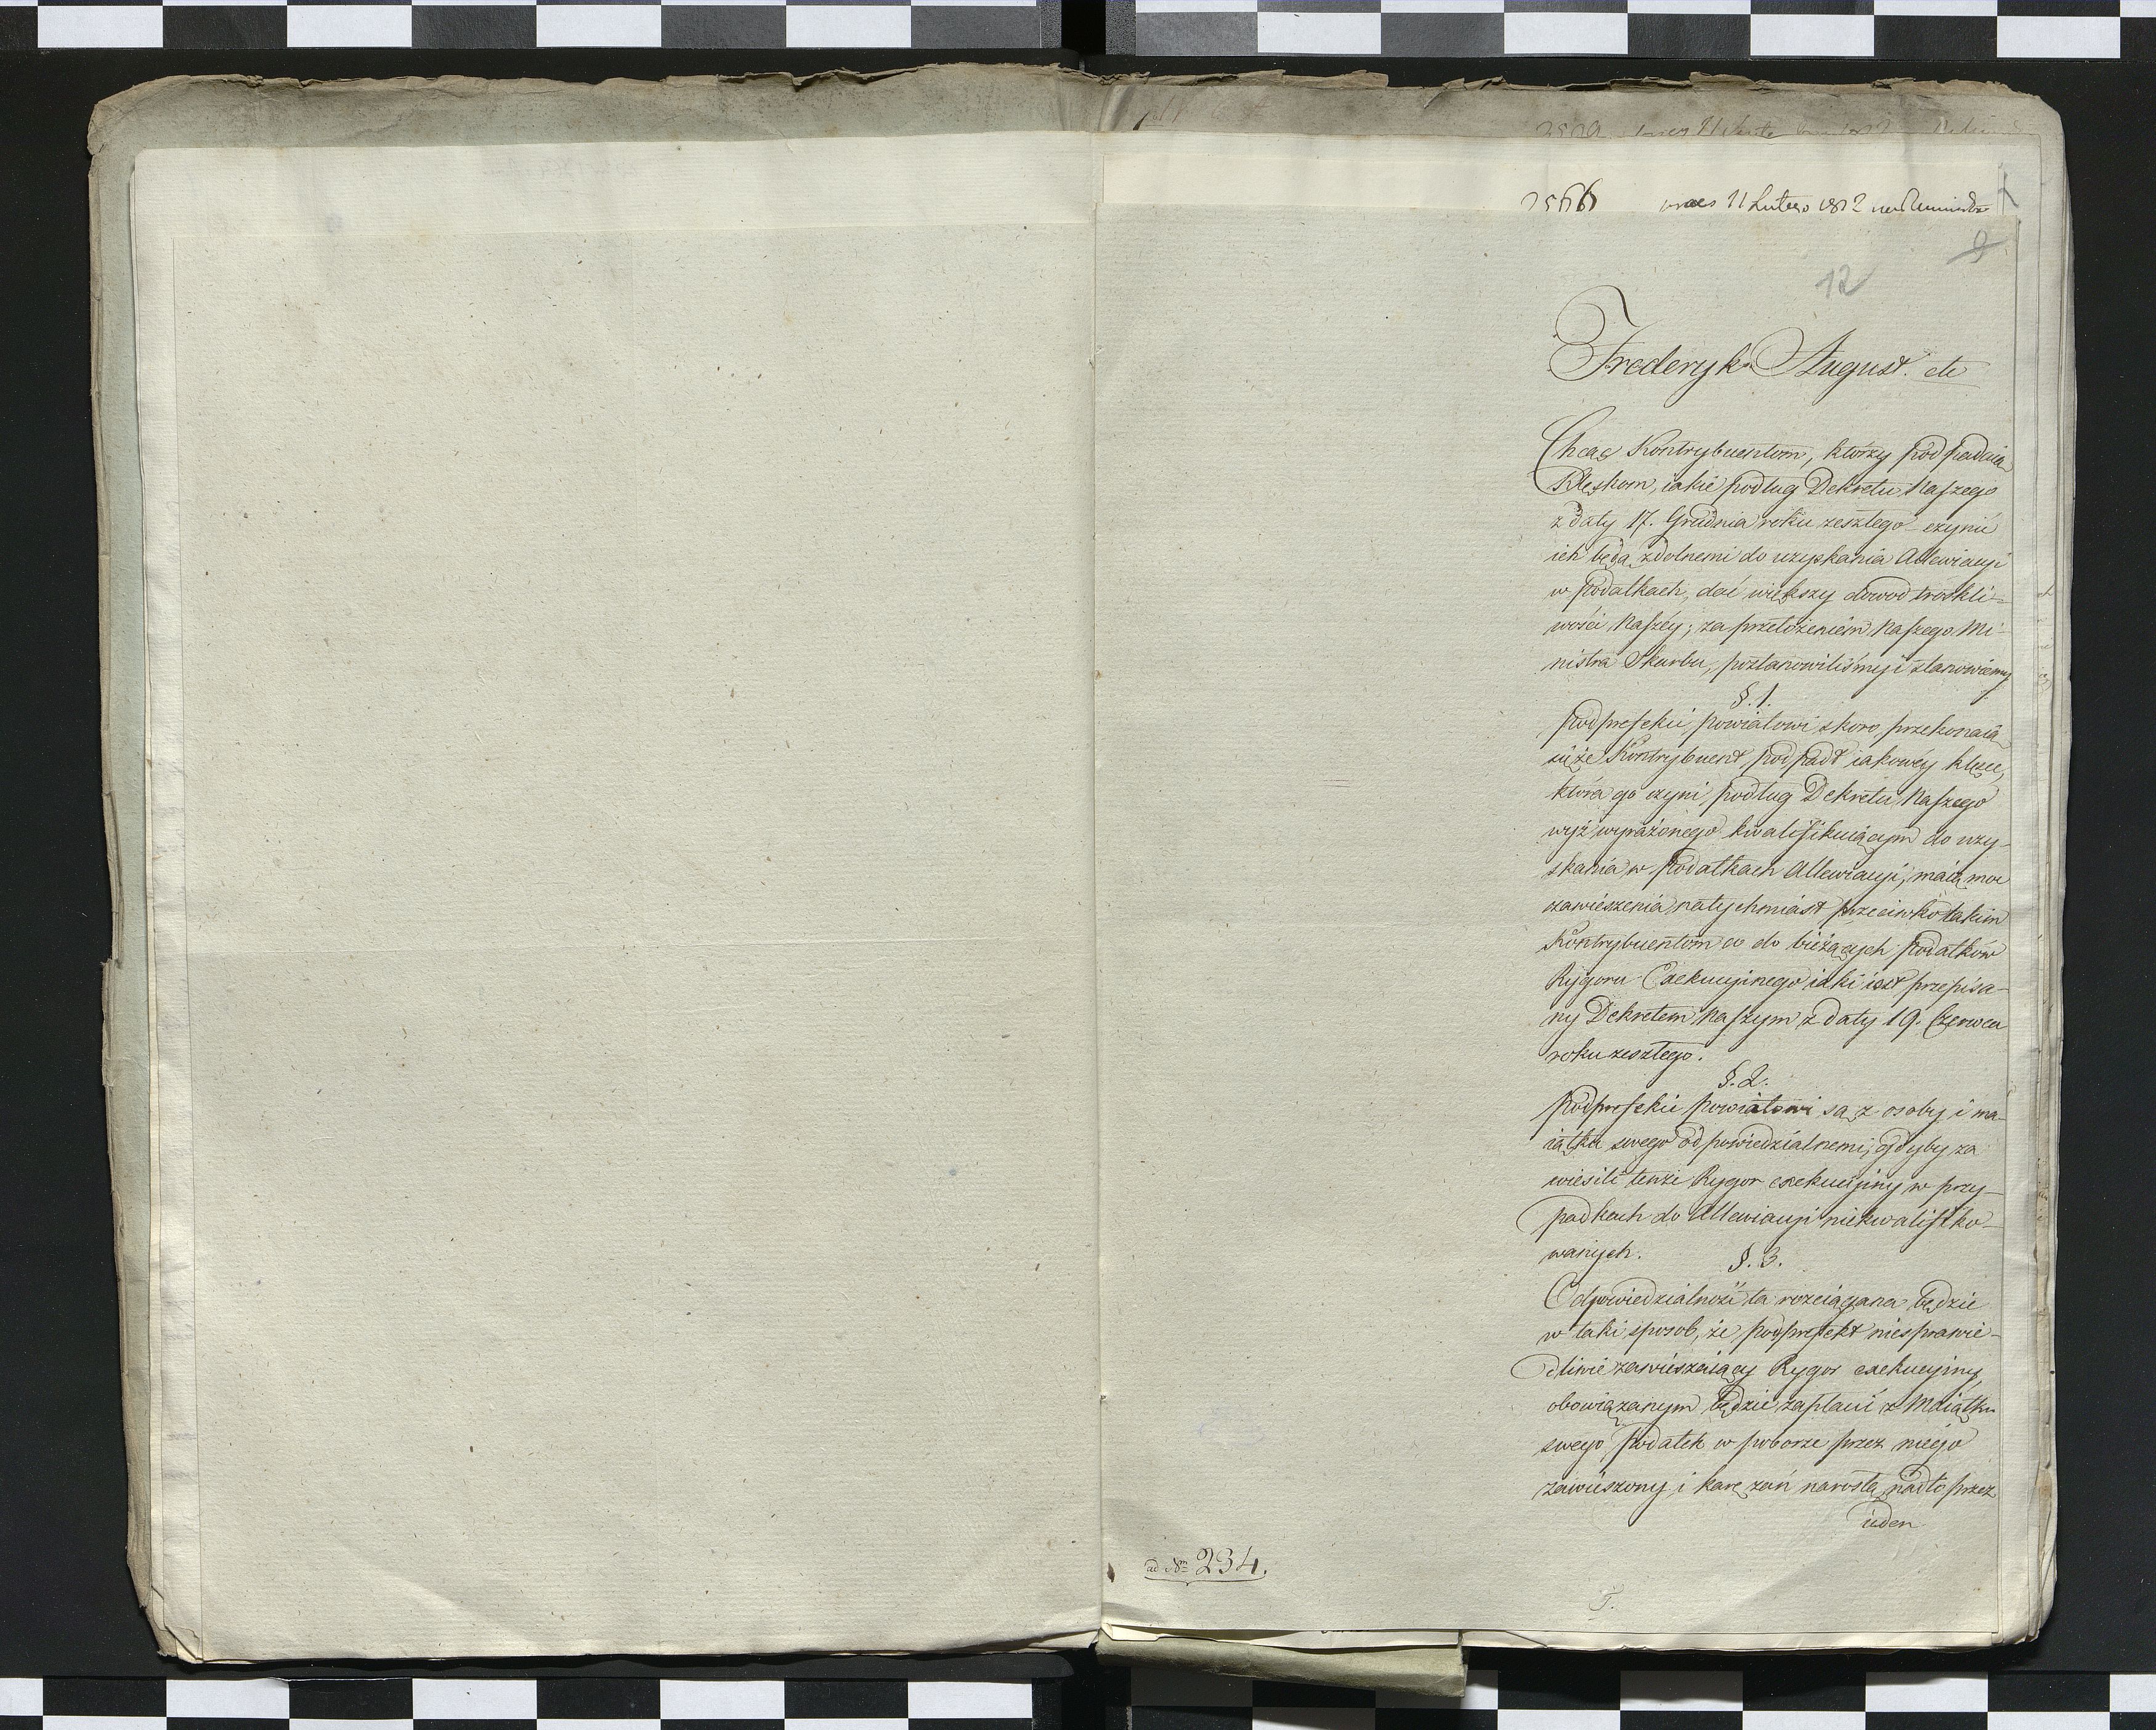 2566 praes 11 Lutego 1812
9
12
Frederyk August. etc
Chcąc Kontrybuentom, którzy podpadaią
Klęskom, iakie podług Dekretu Naszego
z daty 17. Grudnia roku zeszłego czynić
ich będą zdolnemi do uzyskania Allewiacyi
w Podatkach, dać większy dowod troskli=
wości Naszéy; za przełożeniem Naszego Mi-
nistra Skarbu, postanowiliśmy i stanowiemy
§. 1.
Podprefekci powiatowi skoro przekonaią
się że Kontrybuent podpadł iakowéy klęsce,
która go czyni podług Dekretu Naszego
wyż wyrażonego kwalifikuiącym do uzy-
skania w Podatkach Allewiacyi, maią moc
zawieszenia natychmiast przeciwko takim
Kontrybuentom co do bieżących Podatków
Rygoru Exekucyinego iaki iest przepisa-
ny Dekretem Naszym z daty 19. Czerwca
roku zeszłego.
§. 2.
Podprefekci powiatowi są z osoby i ma-
iątku swego odpowiedzialnemi, gdyby za
wiesili tenże Rygor exekucyiny w przy-
padkach do Allewiacyi niekwalifiko-
wanych.
§. 3.
Odpowiedzialność ta rozciągana będzie
w taki sposob, że podprefekt niesprawie-
dliwie zawieszaiący Rygor exekucyiny,
obowiązanym będzie zapłacić z Maiątku
swego Podatek w poborze przez niego
zawieszony i karę zań narosłą, nadto przez
ieden
ad Nrm 234.